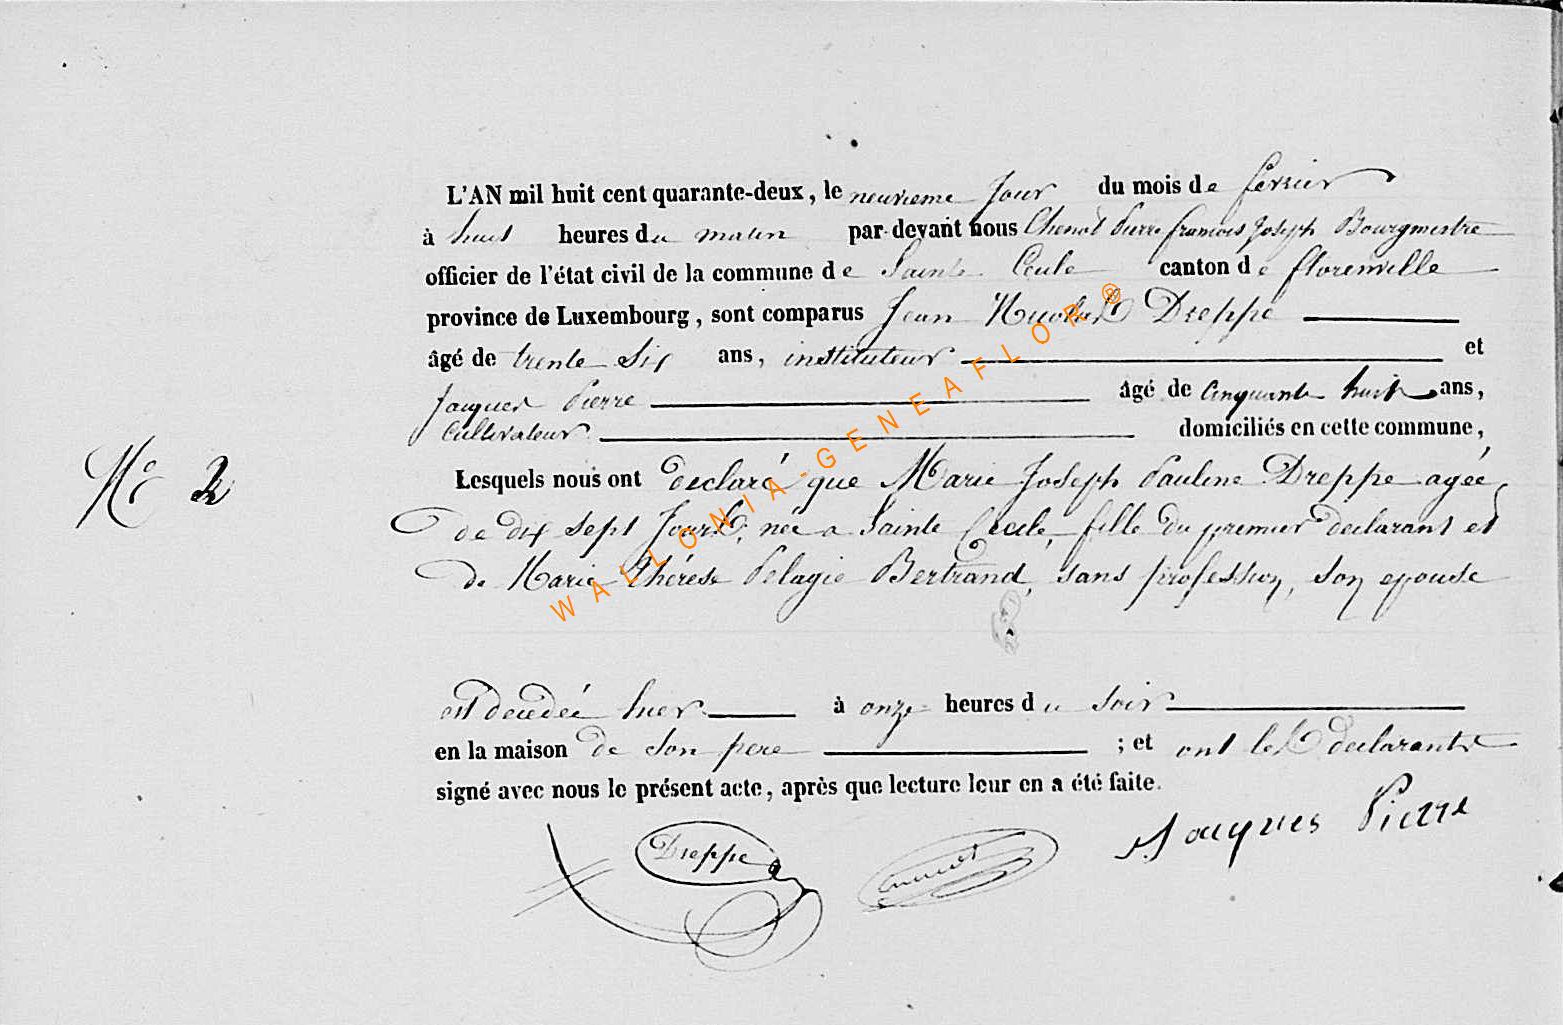 L'AN mil huit cent quarante-deux, le neuvieme Jour du mois de fevrier
à huit heures du matin par-devant nous Chenot Pierre francois Joseph Bourgmestre
officier de l'état civil de la commune de Sainte Cecile canton de florenville
province de Luxembourg, sont comparus Jean Nicolas Dreppe
âgé de trente six ans, instituteur et
Jacques Pierre âgé de cinquante huit ans,
Cultivateur domiciliés en cette commune,
Nº 2
Lesquels nous ont declaré que Marie Joseph Pauline Dreppe agée
de dix sept Jours, née a Sainte Cecile, fille du premier declarant et
de Marie Thérese Pelagie Bertrand, sans profession, son epouse
est decedée hier à onze heures du soir
en la maison de son pere ; et ont les declarants
signé avec nous le présent acte, après que lecture leur en a été faite.
Dreppe Chenot Jacques Pierre
WALLONIA-GENEAFLOR®